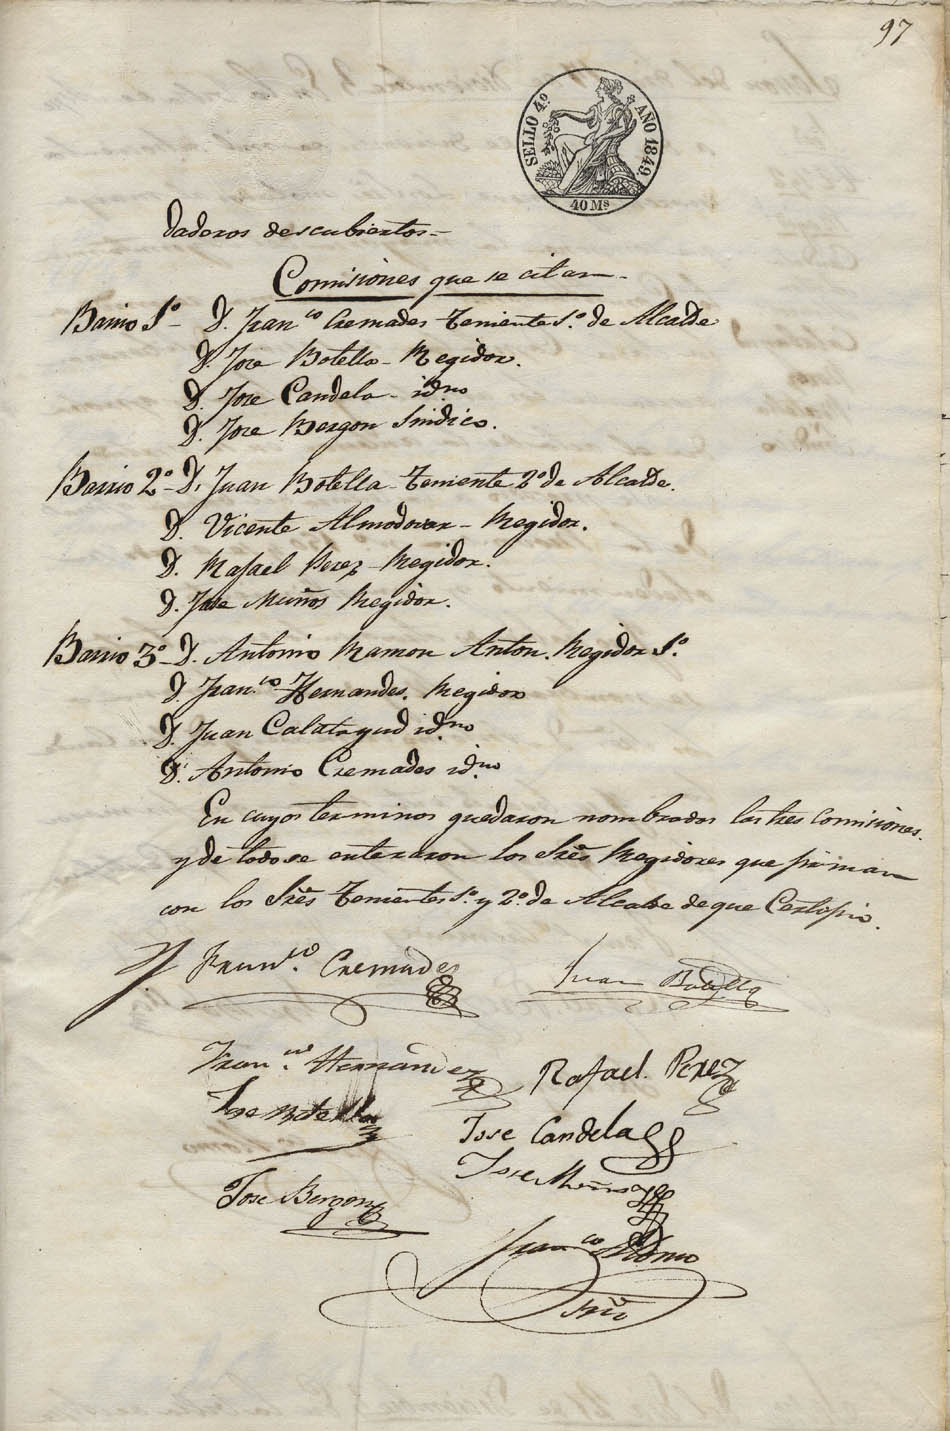 97
SELLO 4º AÑO 1849.
40 Ms
daderos descubiertos =
Comisiones que se citan.
Barrio 1º - D. Franco Cremades Teniente 1º de Alcalde
D. Jose Botella - Regidor.
D. Jose Candela - id.mo
D. Jose Bergon Sindico.
Barrio 2º - D. Juan Botella - Teniente 2º de Alcalde.
D. Vicente Almodovar - Regidor.
D. Rafael Perez - Regidor.
D. Jose Muños Regidor.
Barrio 3º - D. Antonio Ramon Anton. Regidor 1º.
D. Fran.co Hernandes. Regidor
D. Juan Calatayud id.mo
D. Antonio Cremades id.mo
En cuyos terminos quedaron nombrados las tres Comisiones.
y de todo se enteraron los Sres Regidores que firman
con los Sres Tenientes 1º y 2º de Alcalde de que Certifico.
Fran.co Cremades
Juan Botella
Fran.co Hernández
Rafael. Perez
Jose Botella
Jose Candela
Jose Muños
Jose Bergon
Fran.co
Srio